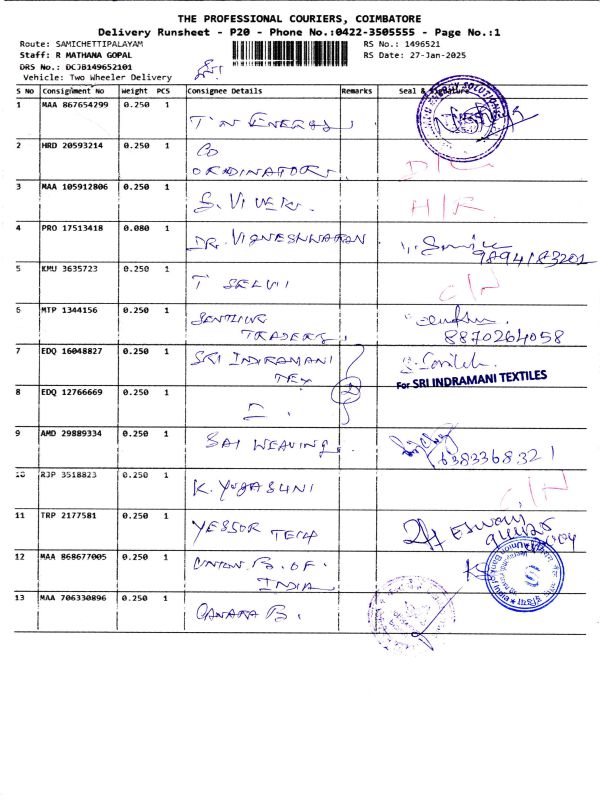 THE PROFESSIONAL COURIERS, COIMBATORE
Delivery Runsheet - P20 - Phone No.:0422-3505555 - Page No.:1
Route: SAMICHETTIPALAYAM
RS No.: 1496521
Staff: R MATHANA GOPAL
RS Date: 27-Jan-2025
DRS No.: DCJB149652101
Vehicle: Two Wheeler Delivery
S NO Consignment No Weight PCS Consignee Details Remarks Seal & Signature
1 MAA 867654299 0.250 1 T N ENERGY
2 HRD 20593214 0.250 1 CO
ORDINATORS. D/L
3 MAA 105912806 0.250 1 S. VIVEK. H/R.
4 PRO 17513418 0.080 1 DR. VIGNESHWARAN
9894183201
5 KMU 3635723 0.250 1 T SELVI C/N
6 MTP 1344156 0.250 1
TRADERS, 8870264058
7 EDQ 16048827 0.250 1 SRI INDRAMANI
TEX 2
For SRI INDRAMANI TEXTILES
8 EDQ 12766669 0.250 1
9 AMD 29889334 0.250 1 SAI WEAVING,
6383368321
10 RJP 3518823 0.250 1 K. YUGASUNI C/N
11 TRP 2177581 0.250 1 YESSOR TECH
12 MAA 868677005 0.250 1 UNION. B. OF.
INDIA
13 MAA 706330896 0.250 1 CANARA B.